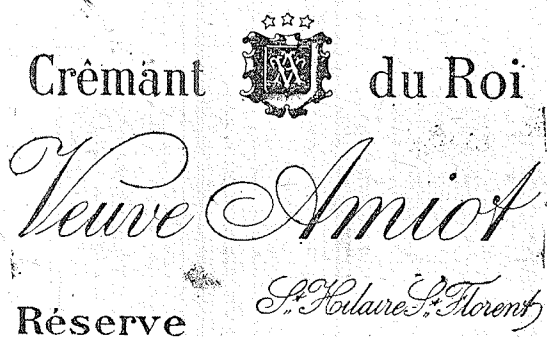 Crêmant du Roi
Veuve Amiot
St. Hilaire St. Florent
Réserve